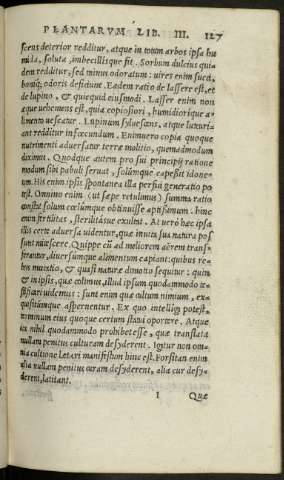 PLANTARVM LIB. III. 127
scens deterior redditur, atque in totum arbos ipsa hu
mila, soluta, imbecillisque fit. Sorbum dulcius qui
dem redditur, sed minus odoratum: uires enim succi,
boniq; odoris desidunt. Eadem ratio de lassere est, et
de lupino, & quicquid eiusmodi. Lasser enim non
æque uehemens est, quia copiosiori, humidiorique a-
limento uescatur. Lupinum syluescens, atque luxuri-
ans redditur infœcundum. Enimuero copia quoque
nutrimenti aduersatur terræ molitio, quemadmodum
diximus. Quodque autem pro sui principij ratione
modum sibi pabuli seruat, solumque capessit idone-
um. His enim ipsis spontanea illa persæpe generatio po
est. Omnino enim (ut sæpe retulimus) summa ratio
solum cœlumque obtinuisse aptissimum. hinc
enim fertilitas, sterilitasue exsistit. At uerò hæc ipsa
illis certe aduersa uidentur, quæ inuita sua natura pos
sunt mitescere. Quippe cũ ad meliorem aërem trans-
ferantur, diuersumque alimentum capiant: quibus re-
bus mutatio, & quasi naturæ dimotio sequitur: quin
& in ipsis, quæ colimus, illud ipsum quodammodo it-
uidemus: sunt enim quæ cultum nimium, ex-
quisitumque aspernentur. Ex quo intelligi potest,
terminum eius quoque certum statui oportere. Atque
ita nihil quodammodo prohibet esse, quæ translata
nullam penitus culturam desyderent. Igitur non om-
nia cultione lætari manifestum hinc est. Forsitan enim
alia nullam penitus curam desyderent, alia cur desy-
derent, latitant.
I Quæ